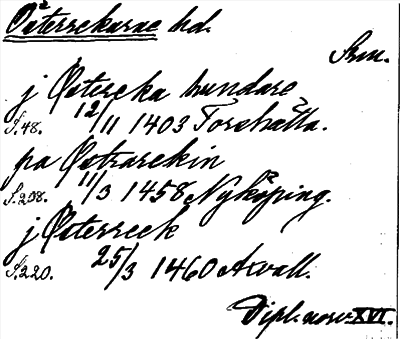 Österrekarne hd.
Srm.
j Østercka hundare
S.48. 12/11 1403 Torshälla.
pa Østrarekin
S.298. 11/3 1458 Nyköping.
j Østerreck
S.220. 25/3 1460 Axvall.
Dipl. norv. XVI.